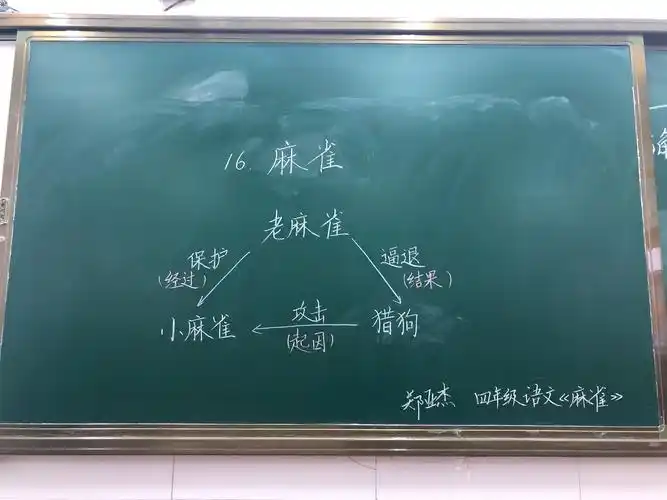 16. 麻雀
老麻雀
保护 逼退
(经过) (结果)
小麻雀 攻击 猎狗
(起因)
郑亚杰 四年级语文《麻雀》